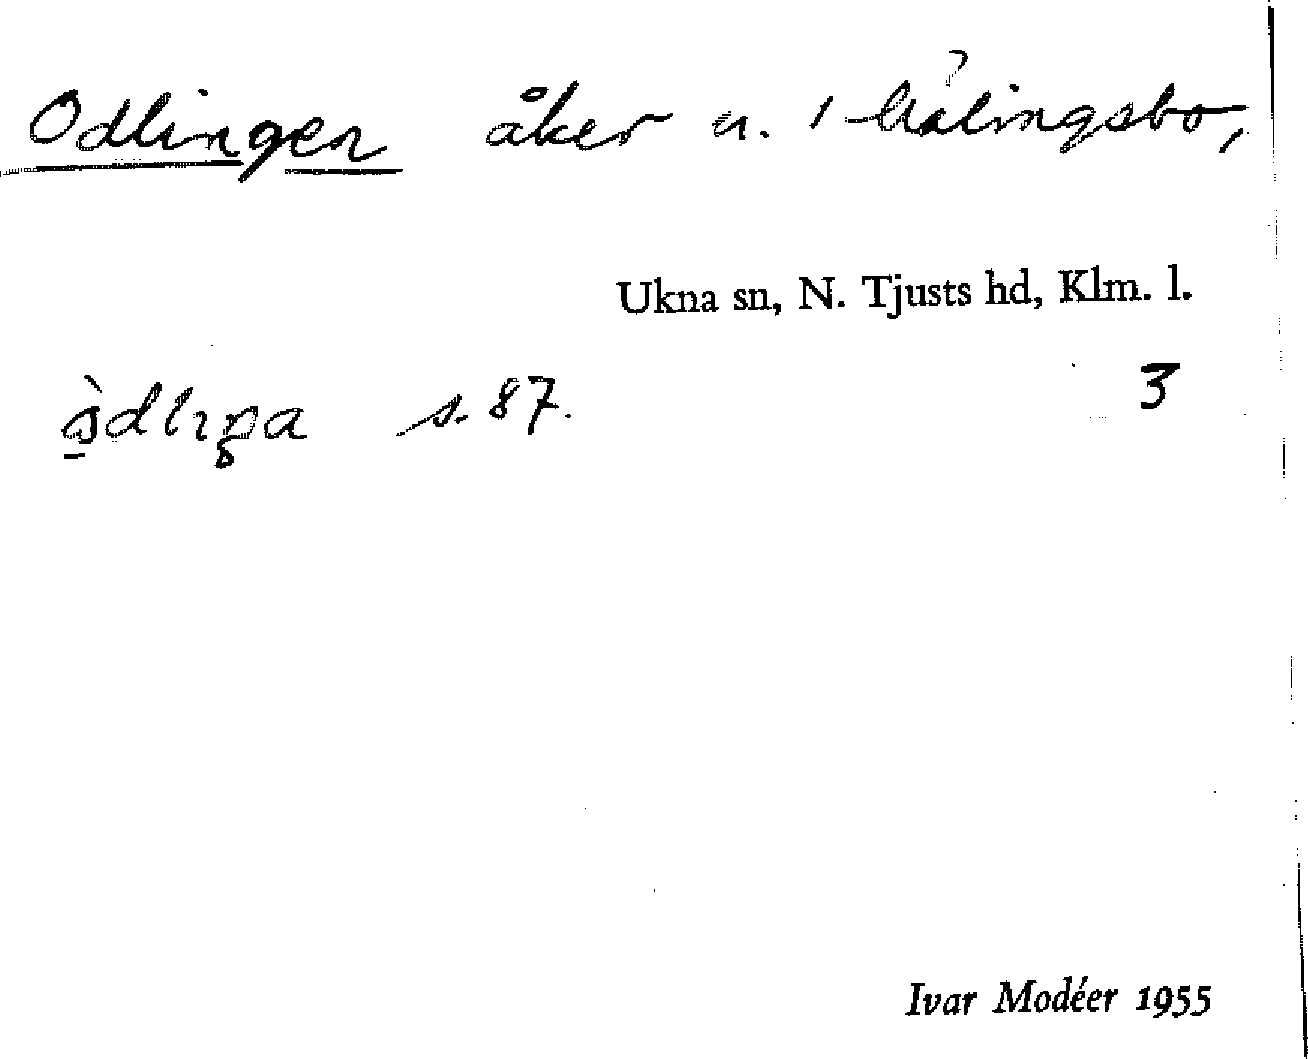 Odlingen åker n. 1
Ukna sn, N. Tjusts hd, Klm. l.
3
s. 87.
Ivar Modéer 1955